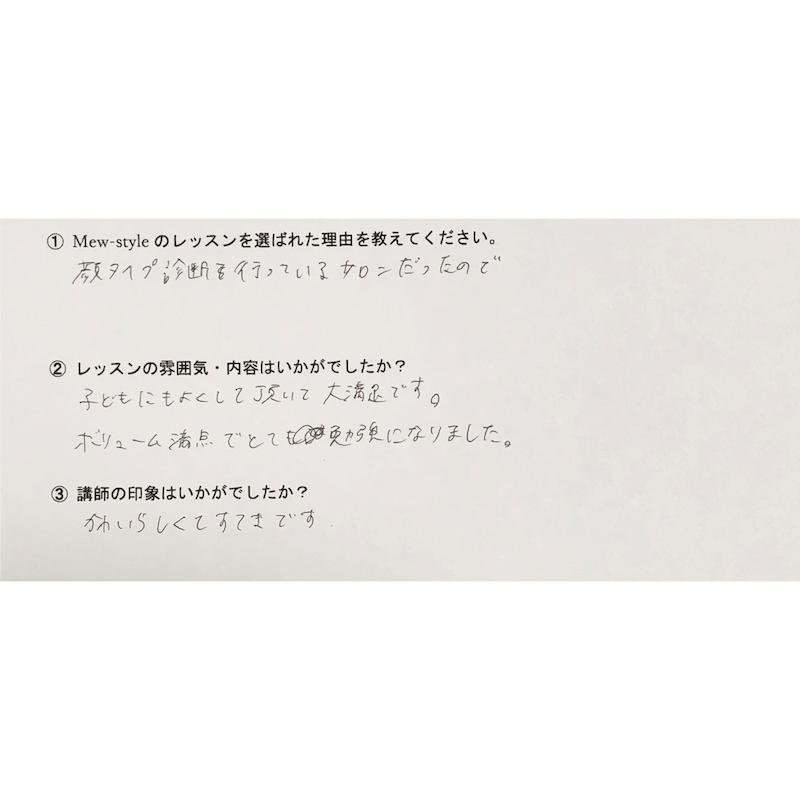 ① Mew-style のレッスンを選ばれた理由を教えてください。
顔タイプ診断を行っているサロンだったので
② レッスンの雰囲気・内容はいかがでしたか？
子どもにもよくして頂いて大満足です。
ボリューム満点でとても勉強になりました。
③ 講師の印象はいかがでしたか？
かわいらしくてすてきです